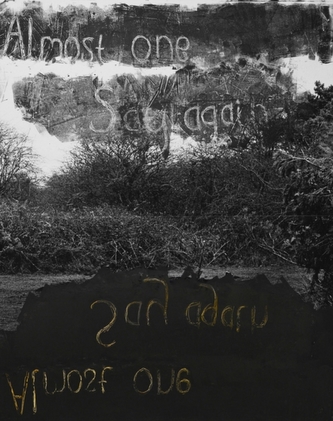 Almost one
Say again
Say again
Almost one